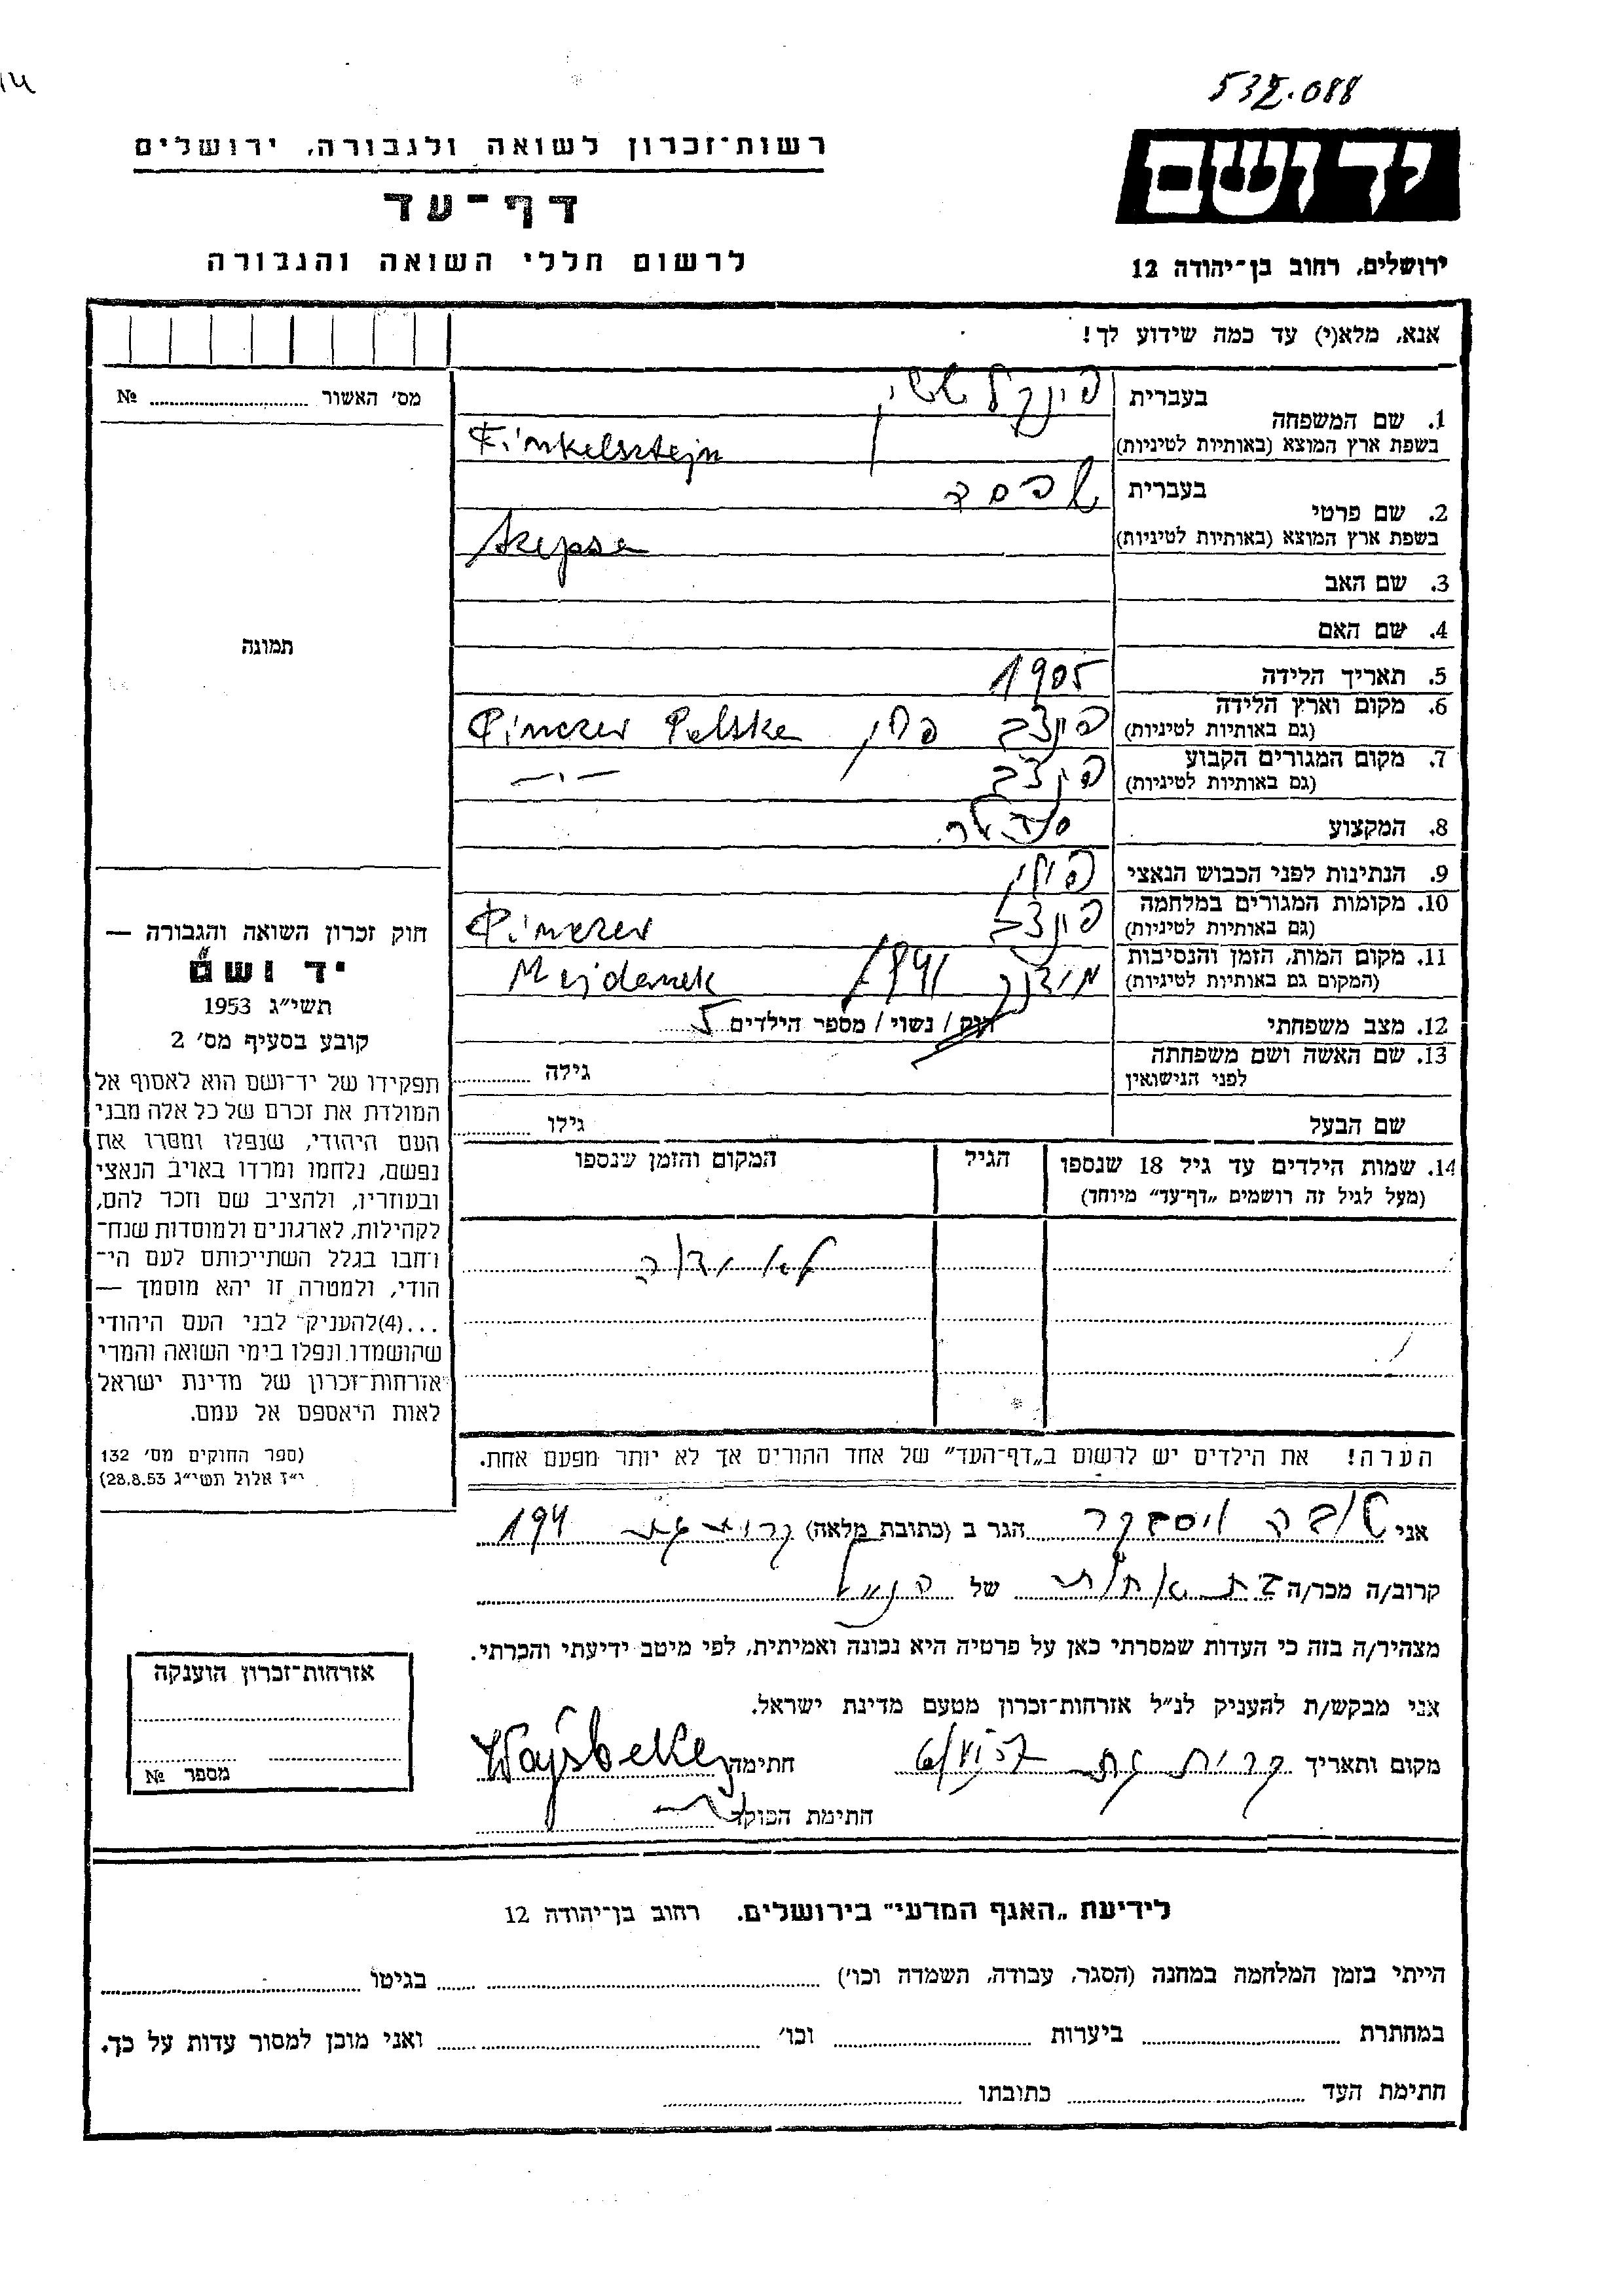 532.088
רשות־זכרון לשואה ולגבורה, ירושלים
דף־עד
לרשום חללי השואה והגבורה
יד ושם
ירושלים, רחוב בן־יהודה 12
אנא, מלא(י) עד כמה שידוע לך!
מס׳ האשור № 
תמונה
חוק זכרון השואה והגבורה —
יד ושם
תשי״ג 1953
קובע בסעיף מס׳ 2
תפקידו של יד־ושם הוא לאסוף אל
המולדת את זכרם של כל אלה מבני
העם היהודי, שנפלו ומסרו את
נפשם, נלחמו ומרדו באויב הנאצי
ובעוזריו, ולהציב שם וזכר להם,
לקהילות, לארגונים ולמוסדות שנח־
רחבו בגלל השתייכותם לעם הי־
הודי, ולמטרה זו יהא מוסמך —
...(4) להעניק לבני העם היהודי
שהושמדו ונפלו בימי השואה והמרי
אזרחות־זכרון של מדינת ישראל
לאות היאספם אל עמם.
(ספר החוקים מס׳ 132
י״ז אלול תשי״ג 28.8.53)
1. שם המשפחה בעברית פינקלשטיין
בשפת ארץ המוצא (באותיות לטיניות) Finkelsztejn
2. שם פרטי בעברית
בשפת ארץ המוצא (באותיות לטיניות)
3. שם האב
4. שם האם
5. תאריך הלידה 1905
6. מקום וארץ הלידה (גם באותיות לטיניות) פינצב פולין Pinczev Polska
7. מקום המגורים הקבוע (גם באותיות לטיניות) פינצב —״—
8. המקצוע סנדלר
9. הנתינות לפני הכבוש הנאצי פולין
10. מקומות המגורים במלחמה (גם באותיות לטיניות) פינצב Pinczev
11. מקום המות, הזמן והנסיבות (המקום גם באותיות לטיניות) מידנק 1941 Majdanek
12. מצב משפחתי רווק / נשוי / מספר הילדים 5
13. שם האשה ושם משפחתה לפני הנישואין גילה
שם הבעל גילו
14. שמות הילדים עד גיל 18 שנספו (מעל לגיל זה רושמים „דף־עד״ מיוחד) הגיל המקום והזמן שנספו
לא ידוע
הערה! את הילדים יש לרשום ב„דף־העד״ של אחד ההורים אך לא יותר מפעם אחת.
אני הגר ב (כתובת מלאה) 194
קרוב/ה מכר/ה של הנ״ל
מצהיר/ה בזה כי העדות שמסרתי כאן על פרטיה היא נכונה ואמיתית, לפי מיטב ידיעתי והכרתי.
אני מבקש/ת להעניק לנ״ל אזרחות־זכרון מטעם מדינת ישראל.
מקום ותאריך קרית גת 6/VI 57 חתימה
חתימת הפוקד
אזרחות־זכרון הוענקה
מספר №
לידיעת „האגף המדעי״ בירושלים. רחוב בן־יהודה 12
הייתי בזמן המלחמה במחנה (הסגר, עבודה, השמדה וכו׳) בגיטו
במחתרת ביערות וכו׳ ואני מוכן למסור עדות על כך.
חתימת העד כתובתו